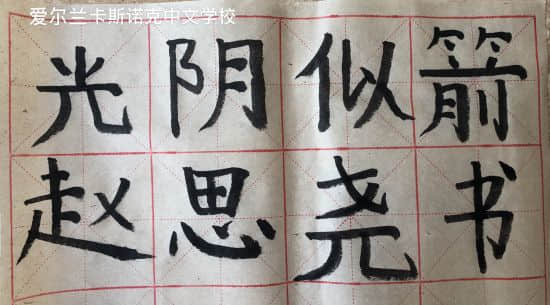 爱尔兰卡斯诺克中文学校
光阴似箭
赵思尧书